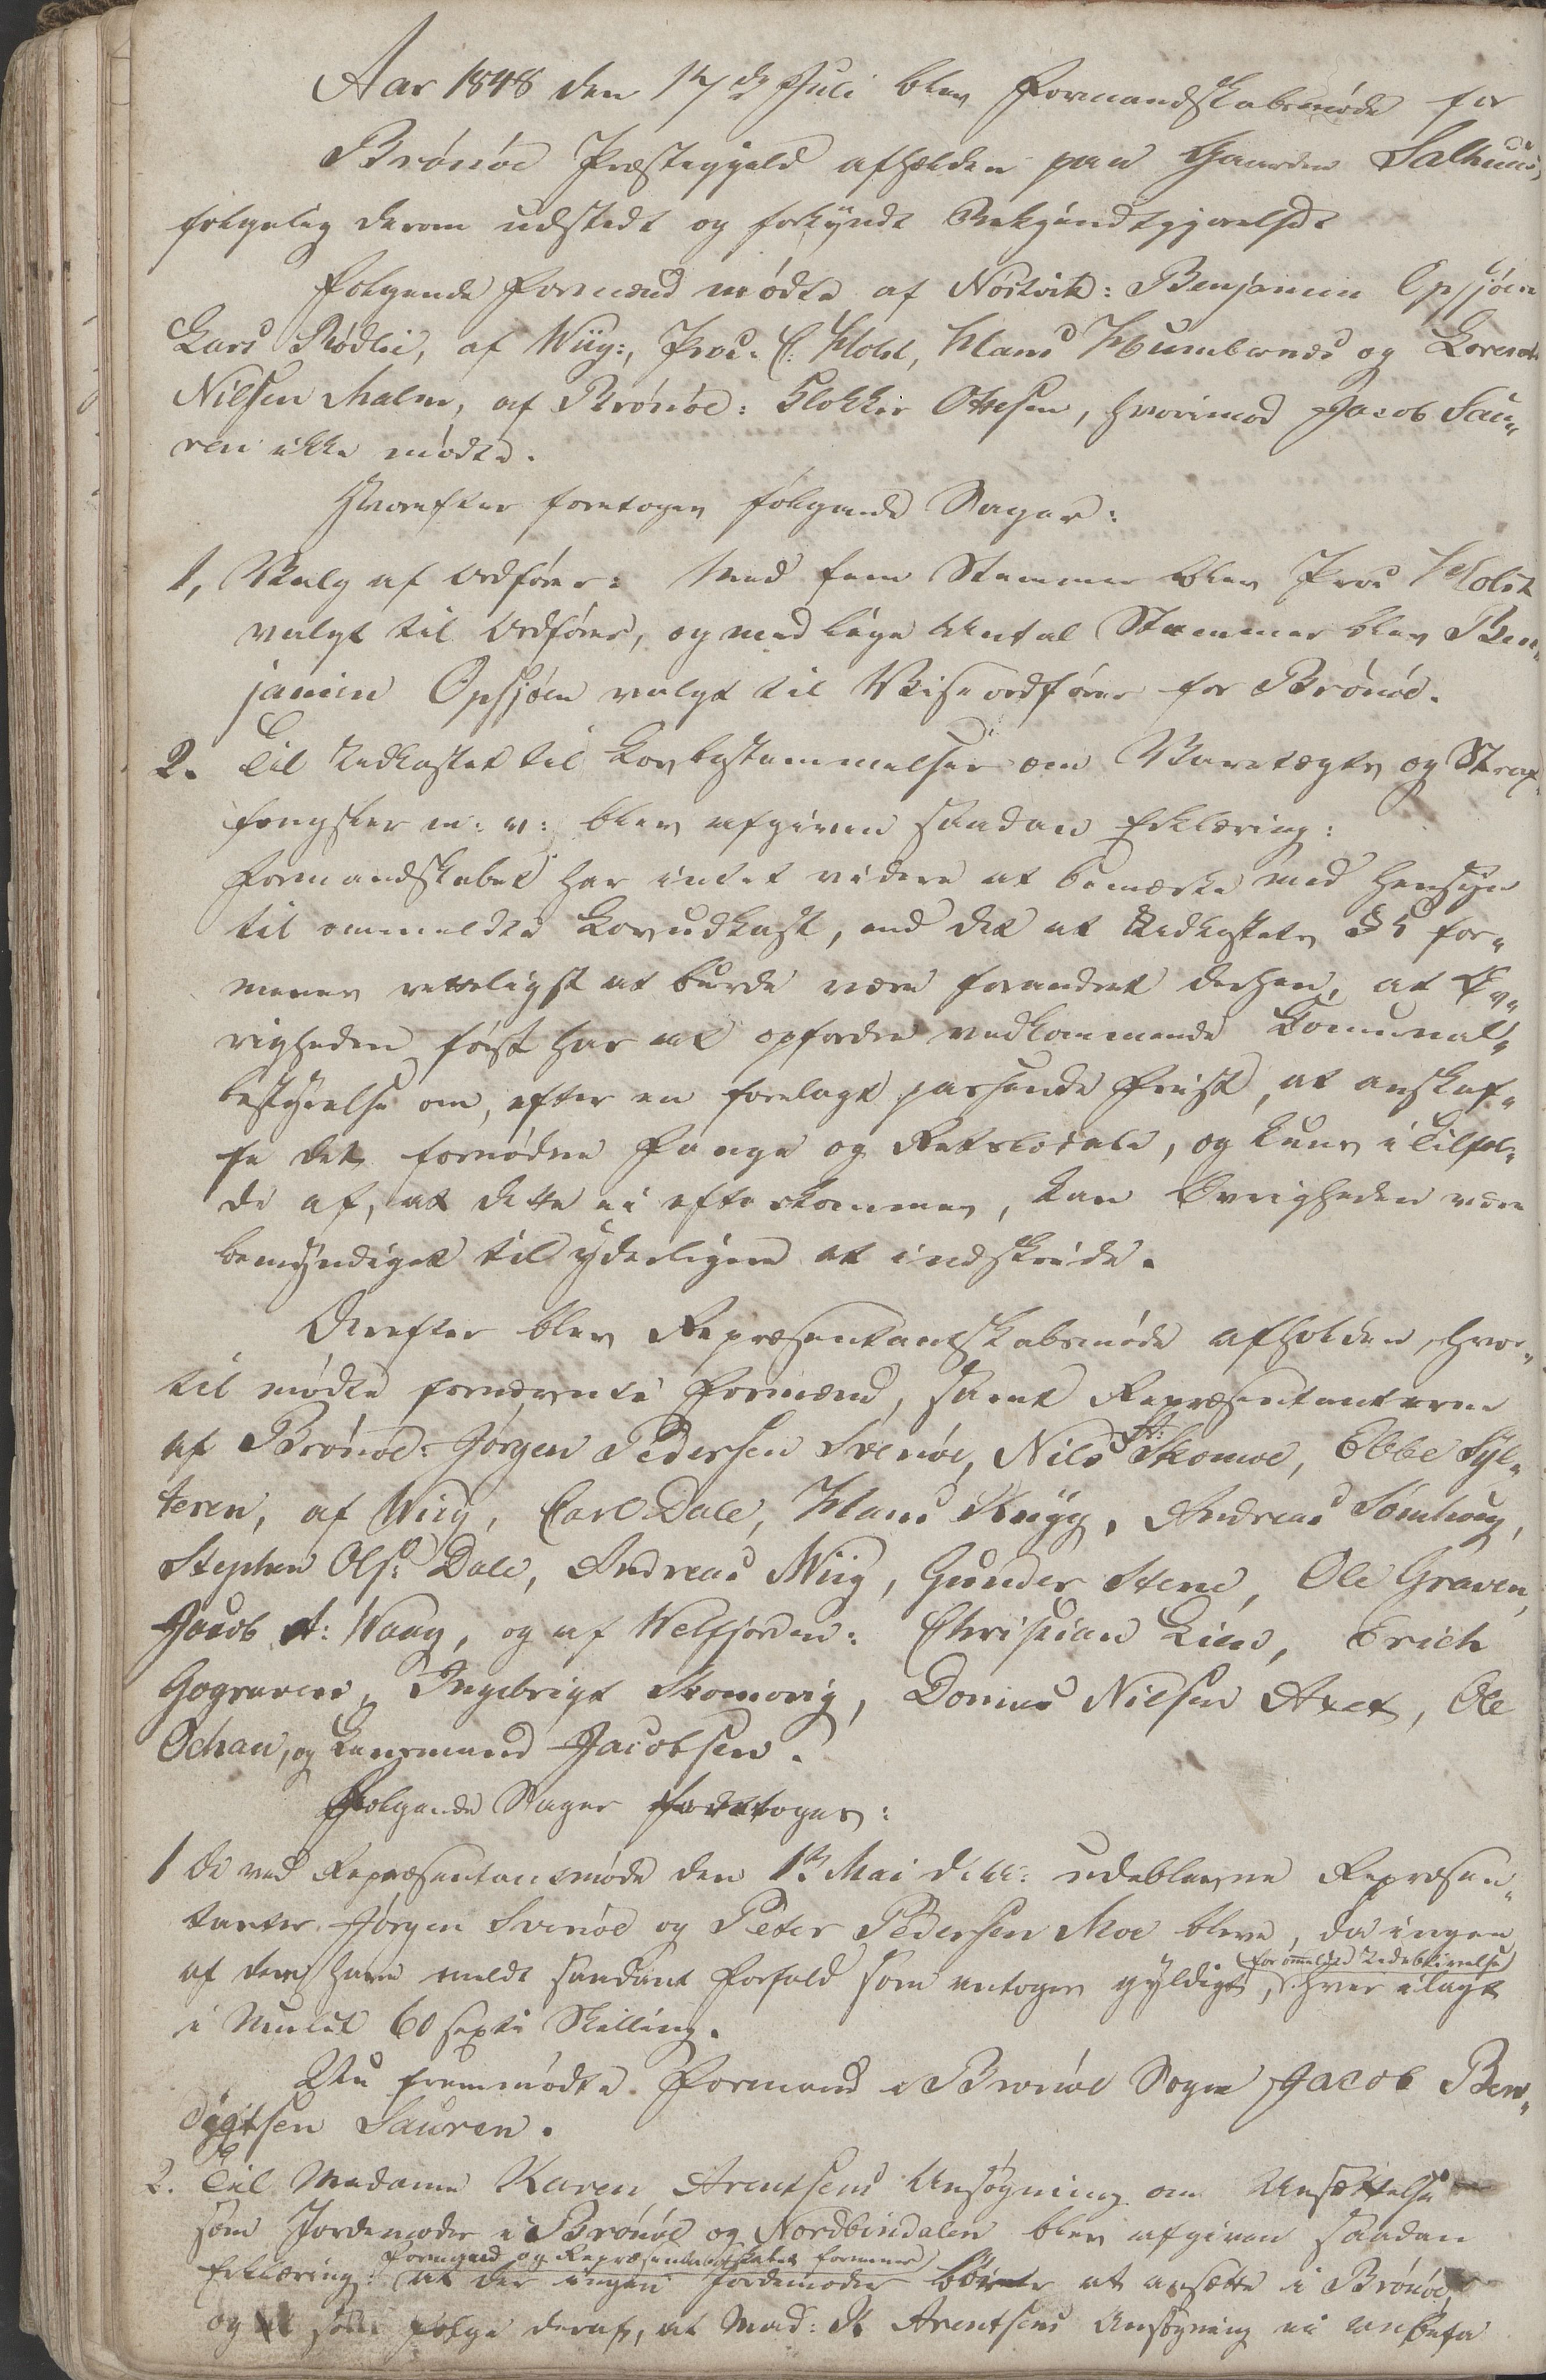 Aar 1848 den 17de Juli blev Formandskabsmøde for
Brönöe Præstegjeld afholden paa Gaarden Salhuus,
følgelig derom udstedt og forkyndt Bekjendtgjørelse
Følgende Formænd mødte af Nöstvik: Benjamin Opsjöen
Lars Rödlie, af Wiig:, Prou. C. Holst, Hans Humbernæs og Lorents
Nilsen Malm, af Brönöe: Klokker Ottesen, hvorimod Jacob Sau„
ren ikke mødte.
Hvorefter foretoges følgende Sager:
1, Valg af Ordfører: Med fem Stemmer blev Prou Holst
valgt til Ordfører, og med lige Antal Stemmer blev Ben„
jamin Opsjöen valgt til Viseordfører for Brönöe.
2. Til Udkastet til Lovbestemmelser om Varetægts og Straf„
fængsler m: v: blev afgiven saadan Erklæring:
Formandskabet har intet videre at bemærke med Hensyn
til ommeldte Lovudkast, end det at Udkastets § 5 for„
menes retteligst at burde være forandret derhen, at Øv„
righeden først har at opfordre vedkommende Comunal„
bestyrelse om, efter en forelagt passende Frist, at anskaf„
fe det fornødne Fange og Retslocale, og kuns i Tilfæl„
de af, at dette ei efterkommes, kan Øvrigheden være
bemyndiget til yderligere at indskride.
Derefter blev Repræsentantskabsmøde afholden, hvor„
til mødte fornævnte Formænd, samt Repræsentanterne
af Brönöe: Jörgen Pedersen Svenöe, Nils A: Skomoe, Ebbe Syl„
teren, af Wiig, Carl Dale, Hans Rugg, Andreas Sömhoug,
Stephen Ols: Dale, Andreas Wiig, Gunder Stene, Ole Graven,
Jacob A: Waag, og af Welfjorden: Christian Lien, Erich
Gograven, Ingebrigt Skomovig, Donius Nilsen Axet, Ole
Ochan, og Lensmand Jacobsen.
Følgende Sager foretoges:
1 De ved Repræsentantmøde den 13 Mai d: A: udeblevne Repræsen„
tanter Jörgen Svenöe og Peter Pedersen Moe bleve, da ingen
af dem have meldt saadant Forfald som antoges gyldigt, for ommeldte Udeblivelse hver ilagt
i Mulct 60 sexti Skilling.
Nu fremmødte Formand i Brönöe Sogn Jacob Ben„
digtsen Sauren.
2. Til Madame Karen Arentsens Ansøgning om Ansættelse
som Jordemoder i Brönöe og Nordbindalen blev afgiven saadan
Erklæring: Formænd og Repræsentantskabet formener at der ingen Jordemoder bør at ansætte i Brönöe,
og som følge deraf, at Mad: K Arentsens Ansøgning ei anbefa